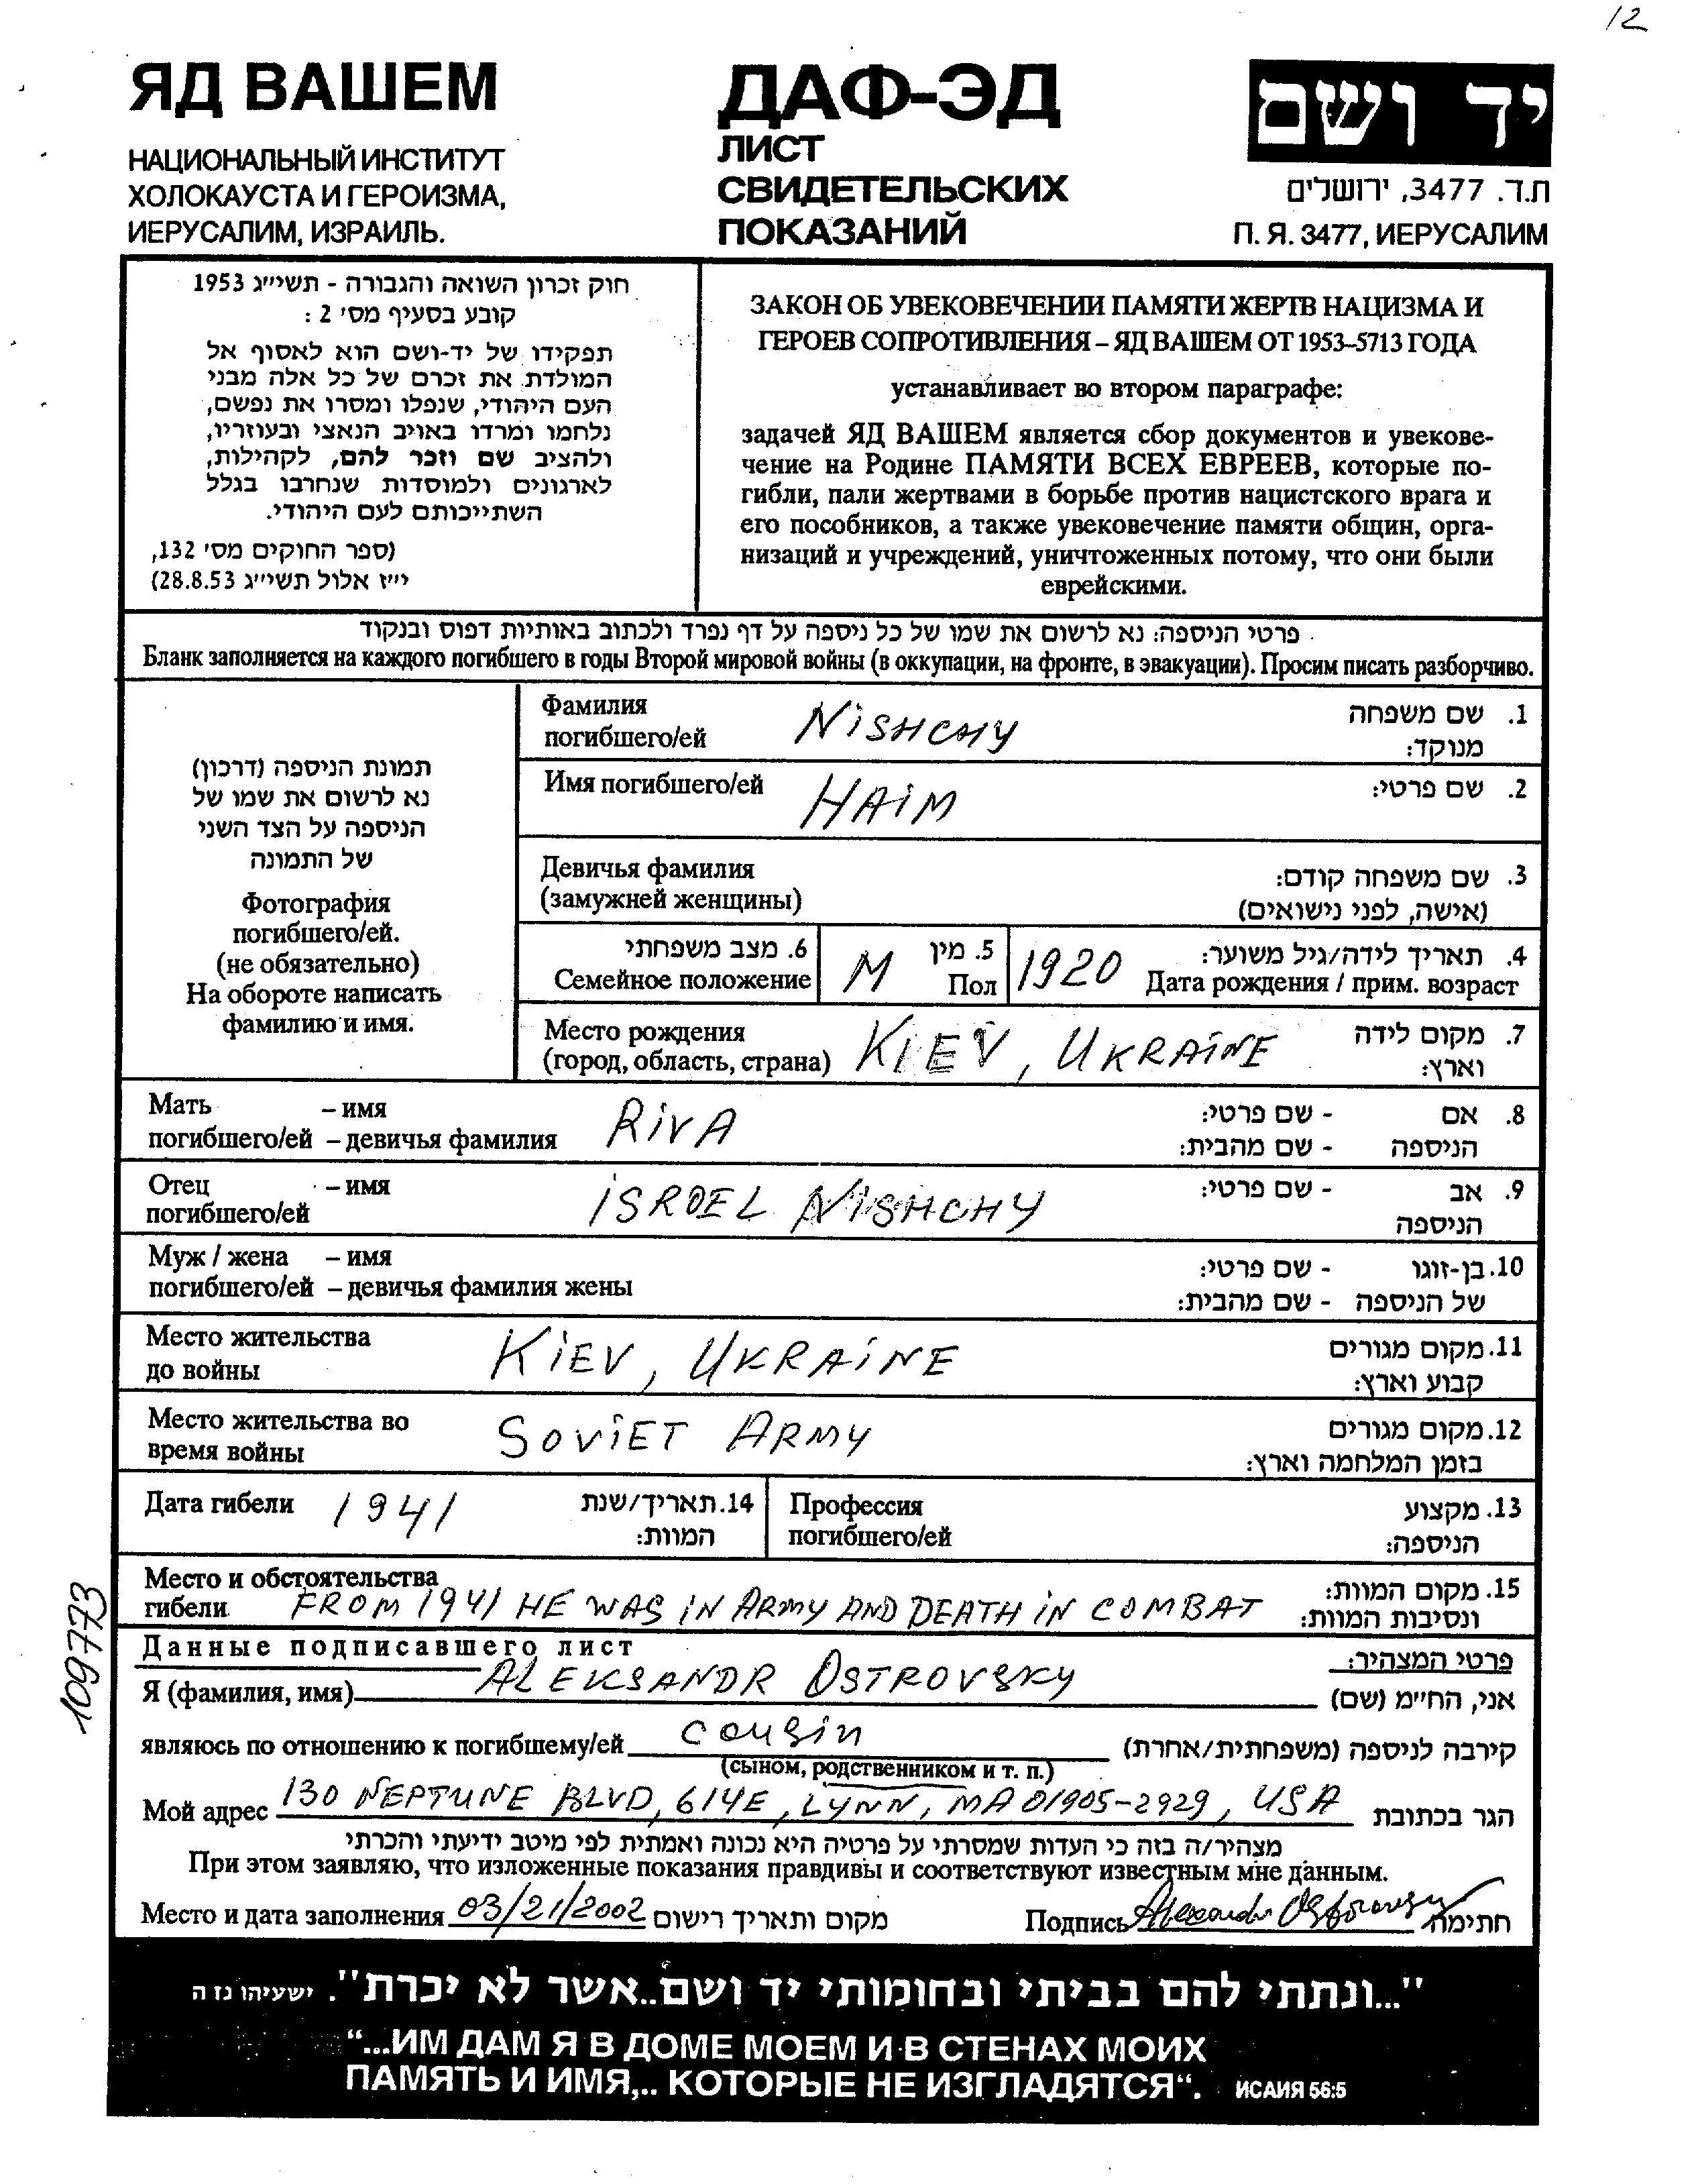 12
ЯД ВАШЕМ
НАЦИОНАЛЬНЫЙ ИНСТИТУТ
ХОЛОКАУСТА И ГЕРОИЗМА,
ИЕРУСАЛИМ, ИЗРАИЛЬ.
ДАФ-ЭД
ЛИСТ
СВИДЕТЕЛЬСКИХ
ПОКАЗАНИЙ
יד ושם
ת.ד. 3477, ירושלים
П. Я. 3477, ИЕРУСАЛИМ
חוק זכרון השואה והגבורה - תשי״ג 1953
קובע בסעיף מס׳ 2 :
תפקידו של יד-ושם הוא לאסוף אל
המולדת את זכרם של כל אלה מבני
העם היהודי, שנפלו ומסרו את נפשם,
נלחמו ומרדו באויב הנאצי ובעוזריו,
ולהציב שם וזכר להם, לקהילות,
לארגונים ולמוסדות שנחרבו בגלל
השתייכותם לעם היהודי.
(ספר החוקים מס׳ 132,
י״ז אלול תשי״ג 28.8.53)
ЗАКОН ОБ УВЕКОВЕЧЕНИИ ПАМЯТИ ЖЕРТВ НАЦИЗМА И
ГЕРОЕВ СОПРОТИВЛЕНИЯ – ЯД ВАШЕМ ОТ 1953–5713 ГОДА
устанавливает во втором параграфе:
задачей ЯД ВАШЕМ является сбор документов и увекове-
чение на Родине ПАМЯТИ ВСЕХ ЕВРЕЕВ, которые по-
гибли, пали жертвами в борьбе против нацистского врага и
его пособников, а также увековечение памяти общин, орга-
низаций и учреждений, уничтоженных потому, что они были
еврейскими.
פרטי הניספה: נא לרשום את שמו של כל ניספה על דף נפרד ולכתוב באותיות דפוס ובנקוד
Бланк заполняется на каждого погибшего в годы Второй мировой войны (в оккупации, на фронте, в эвакуации). Просим писать разборчиво.
תמונת הניספה (דרכון)
נא לרשום את שמו של
הניספה על הצד השני
של התמונה
Фотография
погибшего/ей.
(не обязательно)
На обороте написать
фамилию и имя.
Фамилия
погибшего/ей NISHCHY 1. שם משפחה
מנוקד:
Имя погибшего/ей HAIM 2. שם פרטי:
Девичья фамилия 3. שם משפחה קודם:
(замужней женщины) (אישה, לפני נישואים)
6. מצב משפחתי 5. מין 4. תאריך לידה/גיל משוער:
Семейное положение M Пол 1920 Дата рождения / прим. возраст
Место рождения 7. מקום לידה
(город, область, страна) KIEV, UKRAINE וארץ:
Мать – имя RIVA 8. אם - שם פרטי:
погибшего/ей – девичья фамилия הניספה - שם מהבית:
Отец – имя ISROEL NISHCHY 9. אב - שם פרטי:
погибшего/ей הניספה
Муж / жена – имя 10. בן-זוגו - שם פרטי:
погибшего/ей – девичья фамилия жены של הניספה - שם מהבית:
Место жительства KIEV, UKRAINE 11. מקום מגורים
до войны קבוע וארץ:
Место жительства во SOVIET ARMY 12. מקום מגורים
время войны בזמן המלחמה וארץ:
Дата гибели 1941 14. תאריך/שנת
המוות:
Профессия 13. מקצוע
погибшего/ей הניספה:
Место и обстоятельства 15. מקום המוות:
гибели FROM 1941 HE WAS IN ARMY AND DEATH IN COMBAT ונסיבות המוות:
109773
Данные подписавшего лист פרטי המצהיר:
Я (фамилия, имя) ALEKSANDR OSTROVSKY אני, החי״מ (שם)
являюсь по отношению к погибшему/ей cousin קירבה לניספה (משפחתית/אחרת)
(сыном, родственником и т. п.)
Мой адрес 130 NEPTUNE BLVD, 614E, LYNN, MA 01905-2929, USA הגר בכתובת
מצהיר/ה בזה כי העדות שמסרתי על פרטיה היא נכונה ואמתית לפי מיטב ידיעתי והכרתי
При этом заявляю, что изложенные показания правдивы и соответствуют известным мне данным.
Место и дата заполнения 03/21/2002 מקום ותאריך רישום Подпись Alexandr Ostrovsky חתימה
"...ונתתי להם בביתי ובחומותי יד ושם..אשר לא יכרת". ישעיהו נז ה
“...ИМ ДАМ Я В ДОМЕ МОЕМ И В СТЕНАХ МОИХ
ПАМЯТЬ И ИМЯ,.. КОТОРЫЕ НЕ ИЗГЛАДЯТСЯ“. ИСАИЯ 56:5